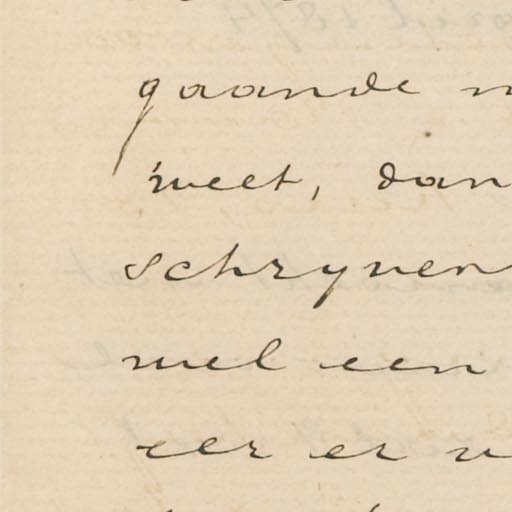 gaande
weet, dan
schryven
wel een
eer er